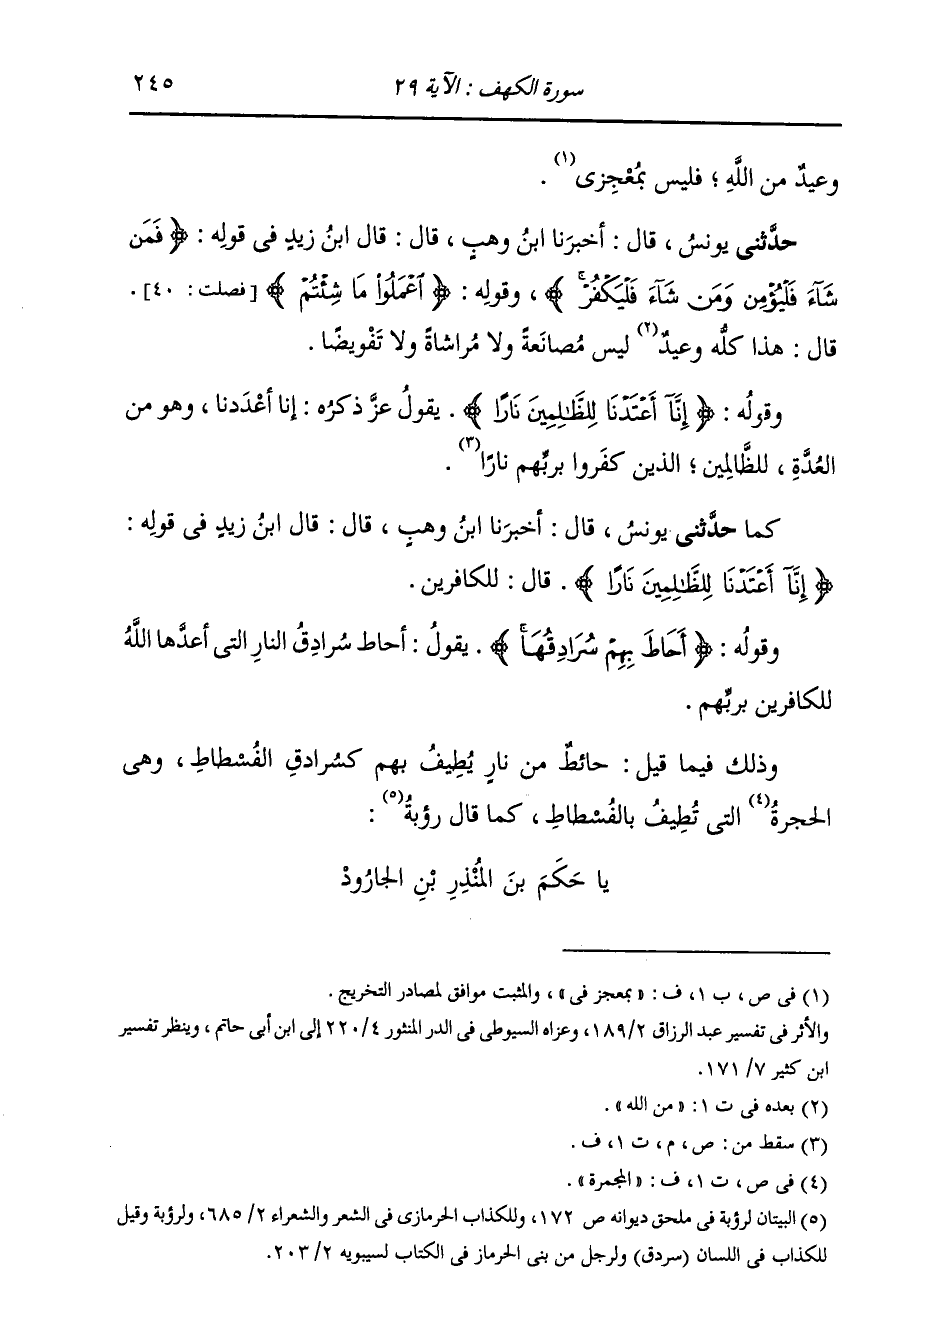 سورة الكهف : الآية ٢٩ ٢٤٥
وعيدٌ من اللَّهِ ؛ فليس بمُعْجِزى(١) .
حدَّثنى يونسُ ، قال : أخبرَنا ابنُ وهبٍ ، قال : قال ابنُ زيدٍ فى قولِه : ﴿ فَمَن
شَآءَ فَلْيُؤْمِن وَمَن شَآءَ فَلْيَكْفُرْۚ ﴾ ، وقولِه : ﴿ ٱعْمَلُوا۟ مَا شِئْتُمْ ﴾ [ فصلت : ٤٠] .
قال : هذا كلُّه وعيدٌ(٢) ليس مُصانَعةً ولا مُراشاةً ولا تَفْويضًا .
وقولُه : ﴿ إِنَّآ أَعْتَدْنَا لِلظَّٰلِمِينَ نَارًا ﴾ . يقولُ عزَّ ذكرُه : إنا أعْدَدنا ، وهو من
العُدَّةِ ، للظَّالِمِين ؛ الذين كفَروا بربِّهم نارًا(٣) .
كما حدَّثنى يونسُ ، قال : أخبرَنا ابنُ وهبٍ ، قال : قال ابنُ زيدٍ فى قولِه :
﴿ إِنَّآ أَعْتَدْنَا لِلظَّٰلِمِينَ نَارًا ﴾ . قال : للكافرين .
وقولُه : ﴿ أَحَاطَ بِهِمْ سُرَادِقُهَاۚ ﴾ . يقولُ : أحاط سُرادِقُ النارِ التى أعدَّها اللَّهُ
للكافرين بربِّهم .
وذلك فيما قيل : حائطٌ من نارٍ يُطِيفُ بهم كسُرادقِ الفُسْطاطِ ، وهى
الحجرةُ(٤) التى تُطِيفُ بالفُسْطاطِ ، كما قال رؤبةُ(٥) :
يا حَكَمَ بنَ المُنْذِرِ بْنِ الجارُودْ
(١) فى ص ، ب ١، ف : «بمعجز فى» ، والمثبت موافق لمصادر التخريج .
والأثر فى تفسير عبد الرزاق ١٨٩/٢ ، وعزاه السيوطى فى الدر المنثور ٢٢٠/٤ إلى ابن أبى حاتم ، وينظر تفسير
ابن كثير ٧/ ١٧١.
(٢) بعده فى ت ١: «من الله» .
(٣) سقط من : ص ، م ، ت ١، ف .
(٤) فى ص ، ت ١، ف : «المجمرة» .
(٥) البيتان لرؤبة فى ملحق ديوانه ص ١٧٢ ، وللكذاب الحرمازى فى الشعر والشعراء ٢/ ٦٨٥، ولرؤبة وقيل
للكذاب فى اللسان (سردق) ولرجل من بنى الحرماز فى الكتاب لسيبويه ٢/ ٢٠٣.